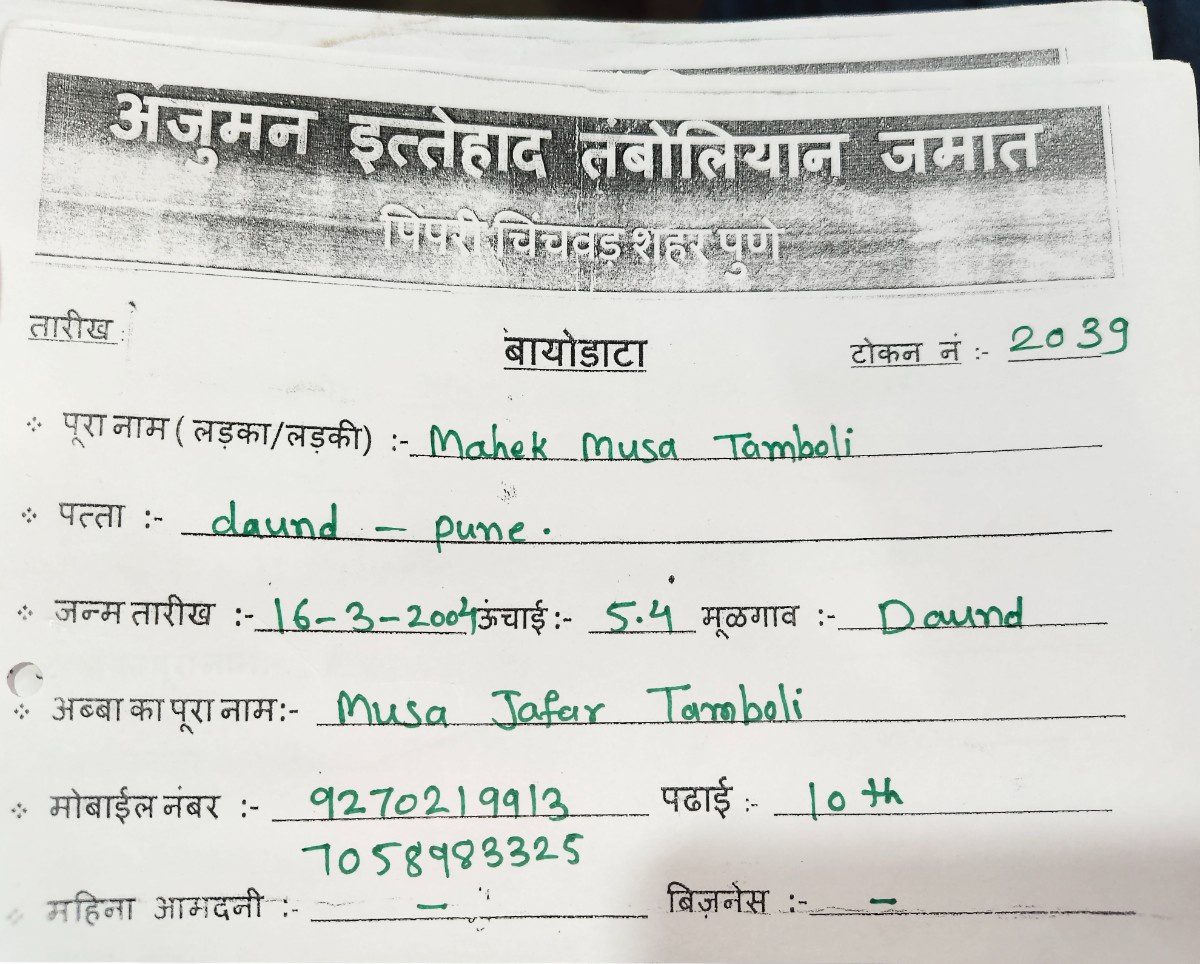 अंजुमन इत्तेहाद तंबोलियान जमात
पिंपरी चिंचवड़ शहर पुणे
तारीख :
बायोडाटा टोकन नं :- 2039
पूरा नाम ( लड़का/लड़की) :- Mahek Musa Tamboli
पत्ता :- daund - pune.
जन्म तारीख :- 16-3-2004 ऊंचाई:- 5.4 मूळगाव :- Daund
अब्बा का पूरा नाम:- Musa Jafar Tamboli
मोबाईल नंबर :- 9270219913 पढाई :- 10th
7058983325
महिना आमदनी :- - बिज़नेस :- -